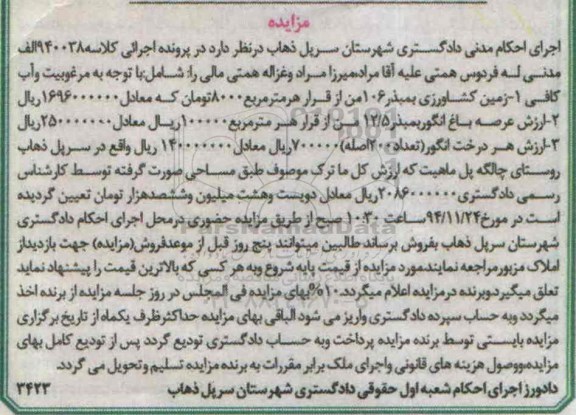 مزایده
اجرای احکام مدنی دادگستری شهرستان سرپل ذهاب درنظر دارد در پرونده اجرائی کلاسه ۹۴۰۰۳۸الف
مدنی له فردوس همتی علیه آقا مراد،میرزا مراد وغزاله همتی مالی را: شامل:با توجه به مرغوبیت وآب
کافی ۱-زمین کشاورزی بمبذر۱۰۶من از قرار هرمترمربع۸۰۰۰تومان که معادل۱۶۹۶۰۰۰۰۰۰ریال
۲-ارزش عرصه باغ انگوربمبذر۱۲/۵من از قرار هر مترمربع۱۰۰۰۰۰ریال معادل۲۵۰۰۰۰۰۰۰ریال
۳-ارزش هر درخت انگور(تعداد۲۰۰اصله)۷۰۰۰۰۰ریال معادل۱۴۰۰۰۰۰۰۰ ریال واقع در سرپل ذهاب
روستای چالگه پل ماهیت که ارزش کل ما ترک موصوف طبق مساحی صورت گرفته توسط کارشناس
رسمی دادگستری۲۰۸۶۰۰۰۰۰۰ریال معادل دویست وهشت میلیون وششصدهزار تومان تعیین گردیده
است در مورخ۹۴/۱۱/۲۴ساعت ۱۰:۳۰ صبح از طریق مزایده حضوری درمحل اجرای احکام دادگستری
شهرستان سرپل ذهاب بفروش برساند.طالبین میتوانند پنج روز قبل از موعدفروش(مزایده) جهت بازدیداز
املاک مزبورمراجعه نمایند.مورد مزایده از قیمت پایه شروع وبه هر کسی که بالاترین قیمت را پیشنهاد نماید
تعلق میگیرد.وبرنده درمزایده اعلام میگردد.۱۰%بهای مزایده فی المجلس در روز جلسه مزایده از برنده اخذ
میگردد وبه حساب سپرده دادگستری واریز می شود الباقی بهای مزایده حداکثرظرف یکماه از تاریخ برگزاری
مزایده بایستی توسط برنده مزایده پرداخت وبه حساب دادگستری تودیع گردد پس از تودیع کامل بهای
مزایده،ووصول هزینه های قانونی واجرای ملک برابر مقررات به برنده مزایده تسلیم وتحویل می گردد.
دادورز اجرای احکام شعبه اول حقوقی دادگستری شهرستان سرپل ذهاب ۳۴۲۳